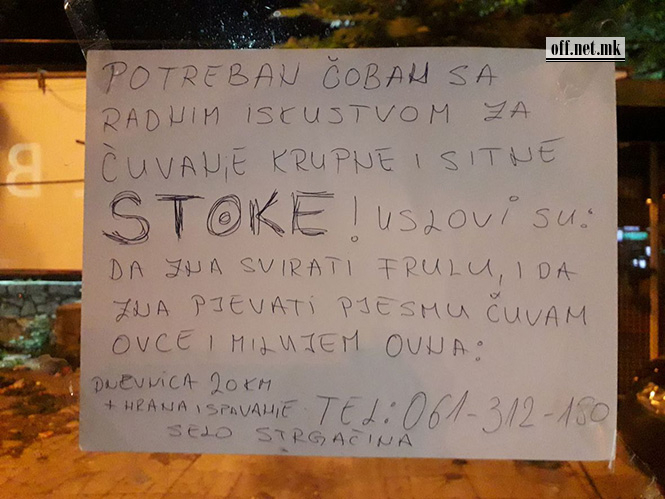 off.net.mk
POTREBAN ČOBAN SA
RADNIM ISKUSTVOM ZA
ČUVANjE KRUPNE I SITNE
STOKE! USLOVI SU:
DA ZNA SVIRATI FRULU, I DA
ZNA PJEVATI PJESMU ČUVAM
OVCE I MILUJEM OVNA:
DNEVNICA 20KM
+ HRANA I SPAVANJE TEL: 061-312-180
SELO STRGAČINA
B